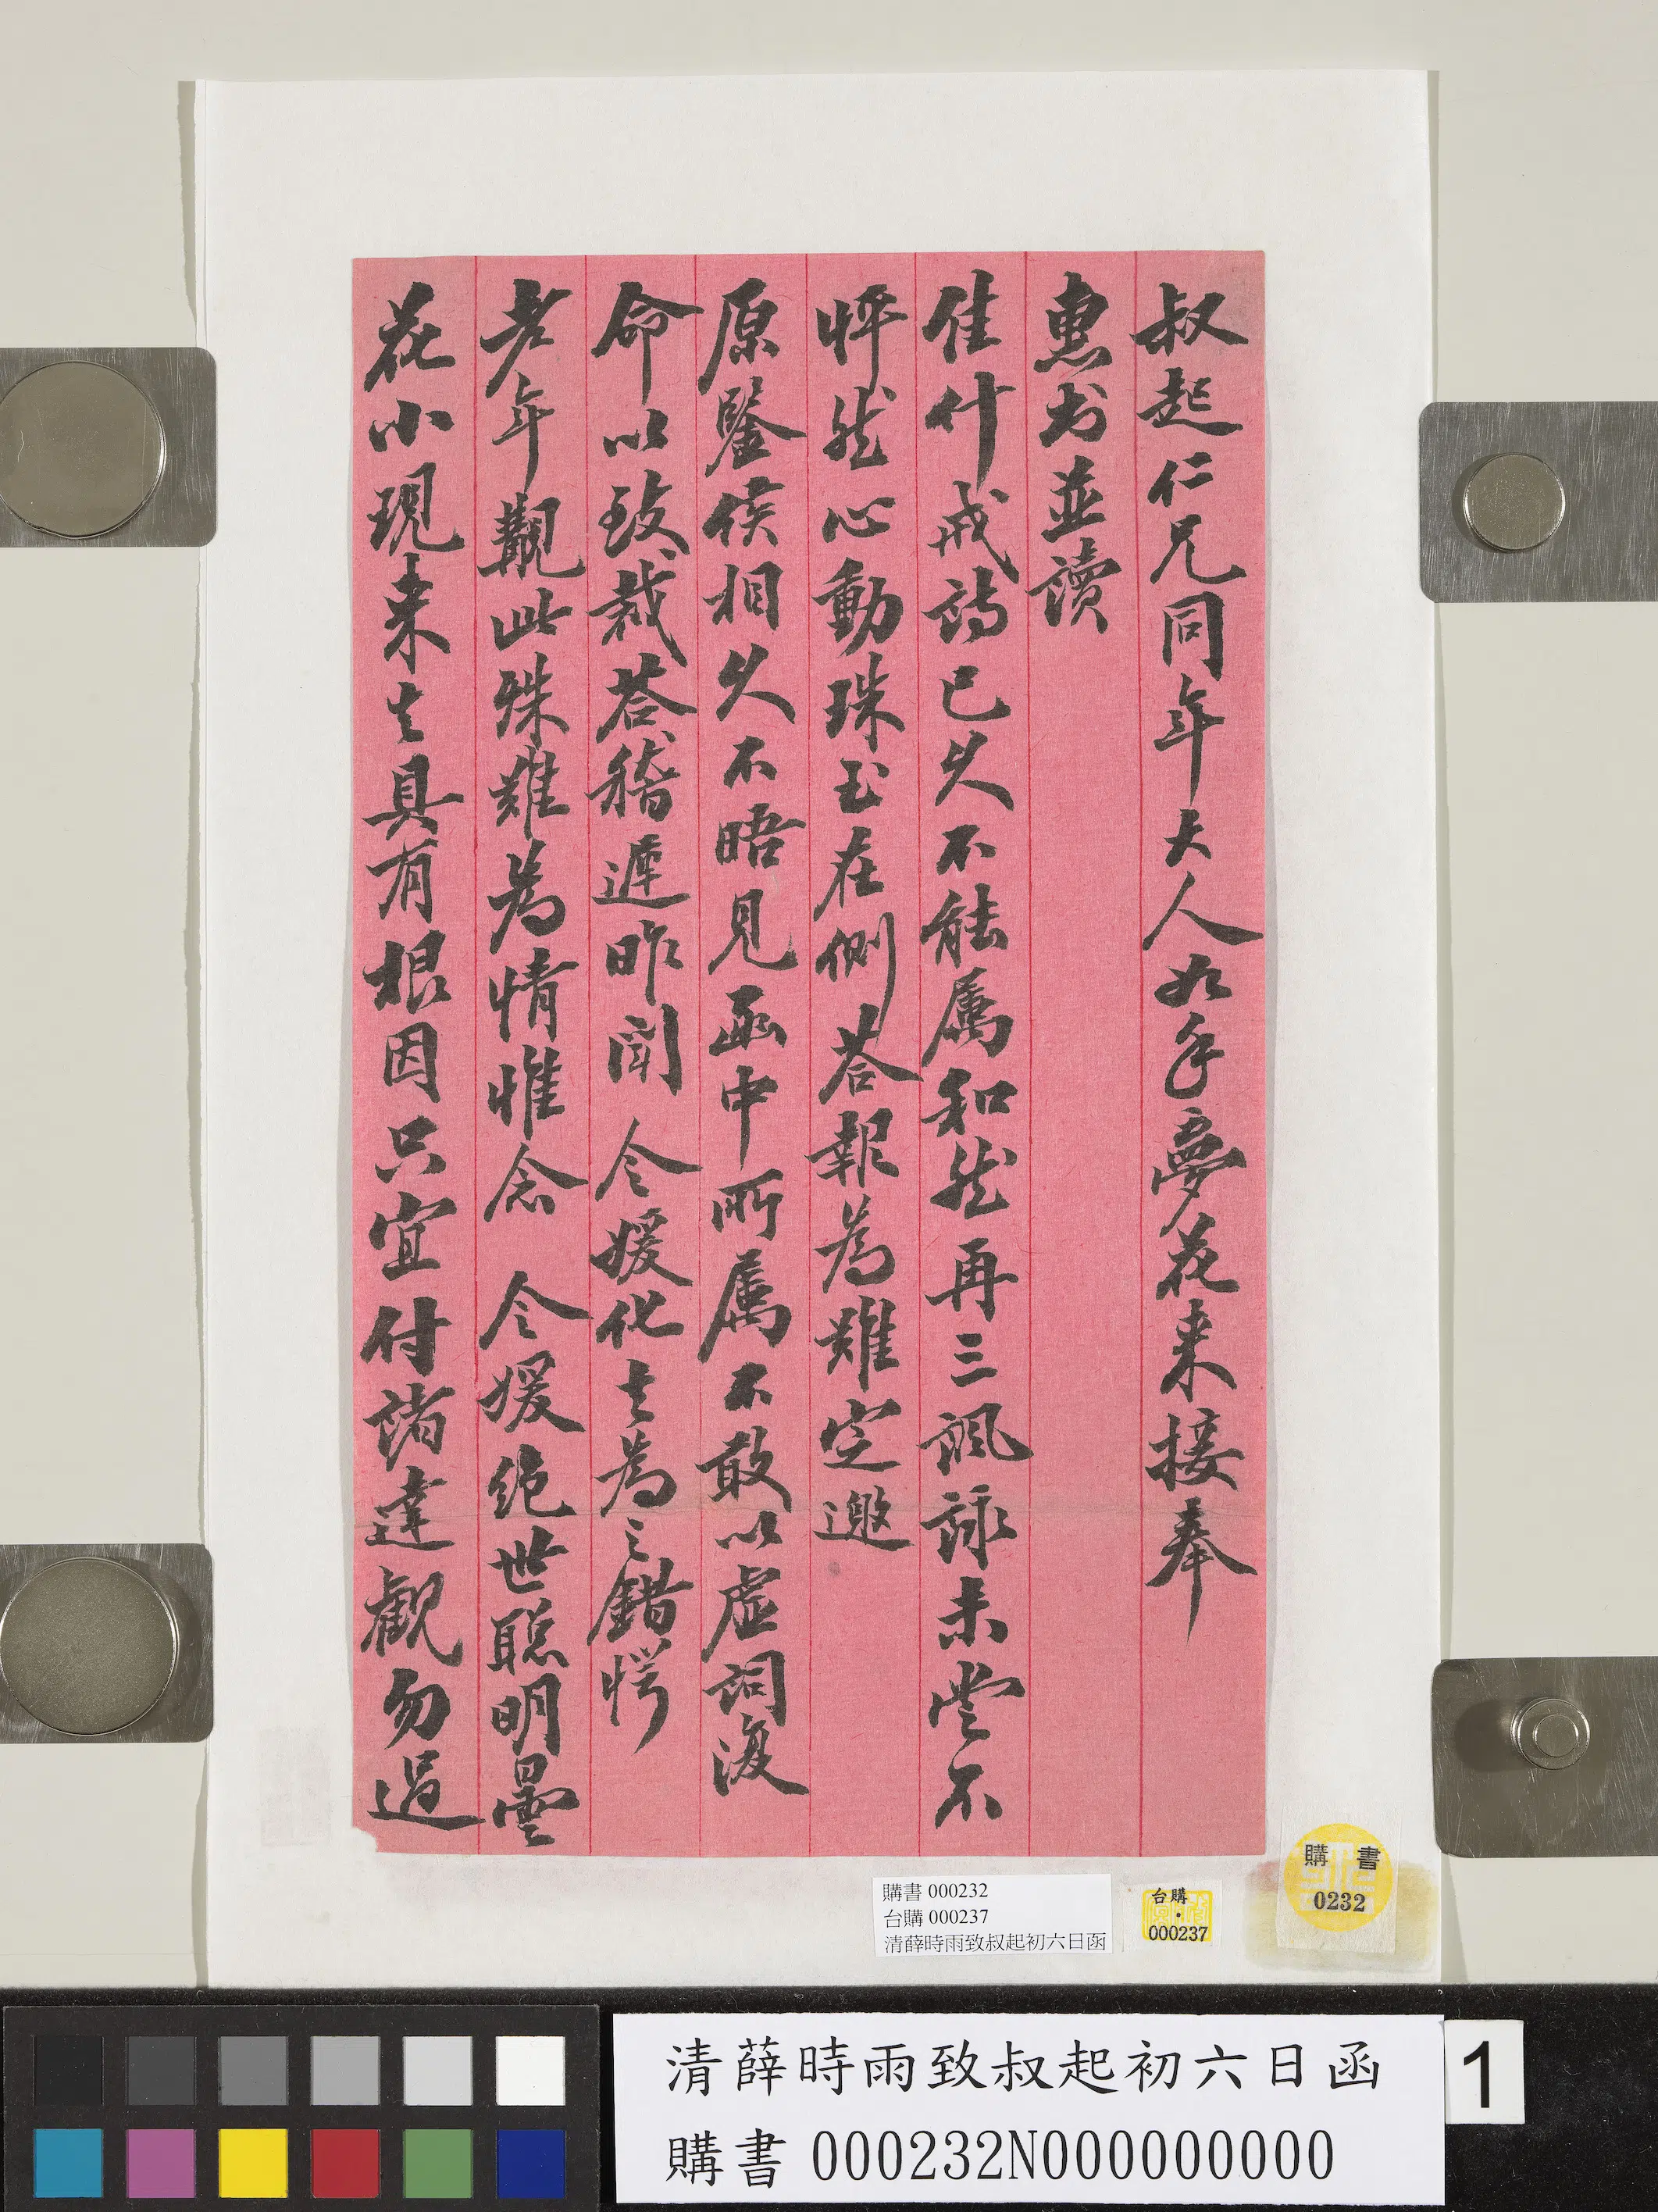 叔起仁兄同年大人如手夢花來接奉
惠书並讀
佳什戒詩已久不能属和然再三諷詠未嘗不
怦然心動珠玉在側荅報為難定邀
原鑒侯相久不晤見函中所属不敢以虛詞復
命以致裁荅稽遲昨聞 令媛化去為之錯愕
老年觀此殊難為情惟念 令媛絕世聰明曇
花小現來去具有根因只宜付諸達觀勿過
購書 000232
台購 000237
清薛時雨致叔起初六日函
台購
000237
購書
0232
清薛時雨致叔起初六日函
購書 000232N000000000
1